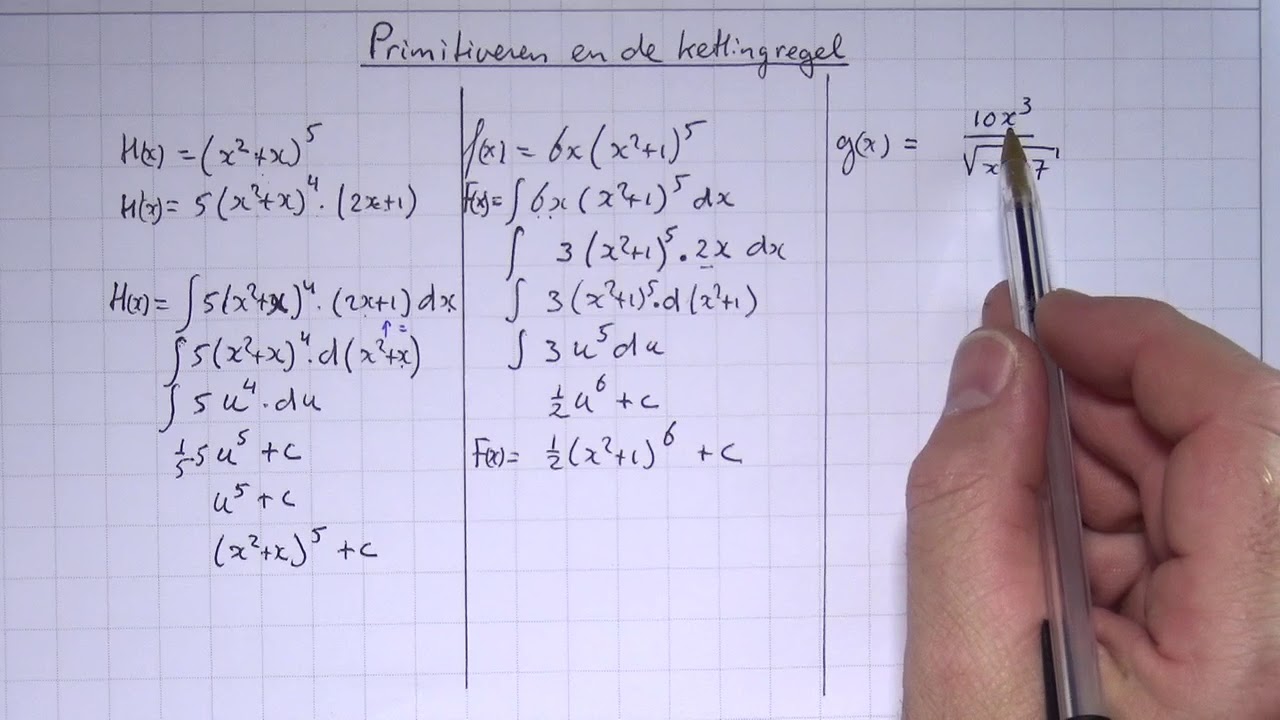 Primitiveren en de kettingregel
H(x) = (x²+x)⁵
H'(x) = 5(x²+x)⁴ · (2x+1)
H(x) = ∫ 5(x²+x)⁴ · (2x+1) dx
↑ =
∫ 5(x²+x)⁴ · d(x²+x)
∫ 5u⁴ · du
1/5 · 5u⁵ + c
u⁵ + c
(x²+x)⁵ + c
f(x) = 6x(x²+1)⁵
F(x) = ∫ 6x(x²+1)⁵ dx
∫ 3(x²+1)⁵ · 2x dx
∫ 3(x²+1)⁵ · d(x²+1)
∫ 3u⁵ du
½u⁶ + c
F(x) = ½(x²+1)⁶ + c
g(x) = 10x³
√x 7